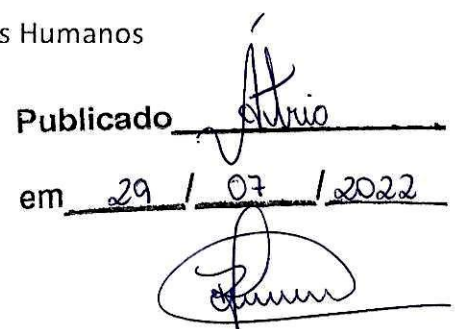 s Humanos
Publicado Átrio
em 29 / 07 / 2022